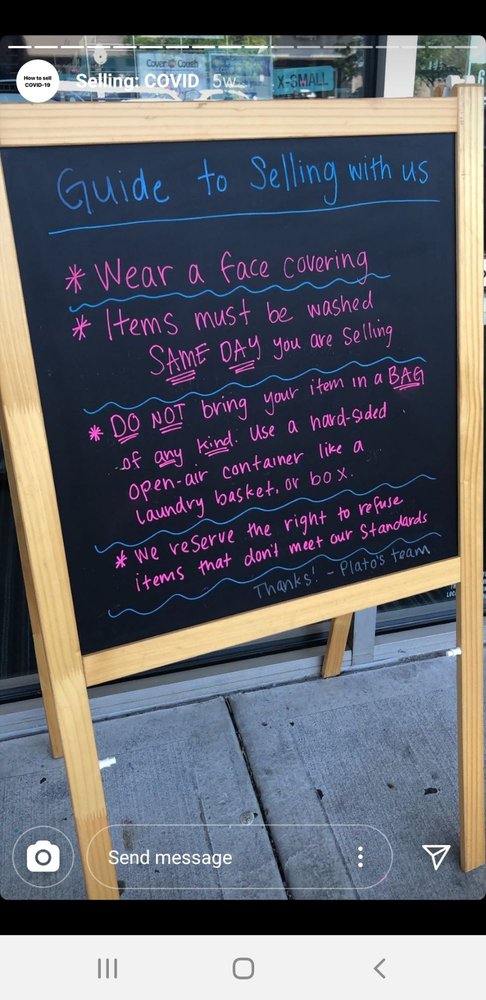 Cover Cough
How to sell
COVID-19
Selling: COVID 5w
X-SMALL
Guide to Selling with us
* Wear a face covering
* Items must be washed
SAME DAY you are selling
* DO NOT bring your item in a BAG
of any kind. Use a hard-sided
open-air container like a
laundry basket, or box.
* We reserve the right to refuse
items that don't meet our standards
Thanks! - Plato's team
Send message